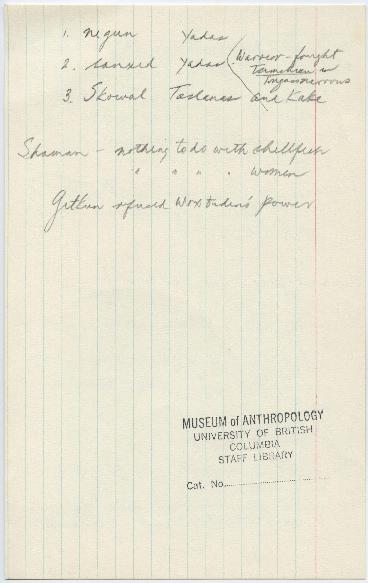 1. negun Yadas
2. sanxed Yadas (Warrior - fought
in
3. Skowal Taslanas and Kake
Shaman - nothing to do with shellfish
" " " . women
Gitkun refused power
MUSEUM of ANTHROPOLOGY
UNIVERSITY OF BRITISH
COLUMBIA
STAFF LIBRARY
Cat. No.